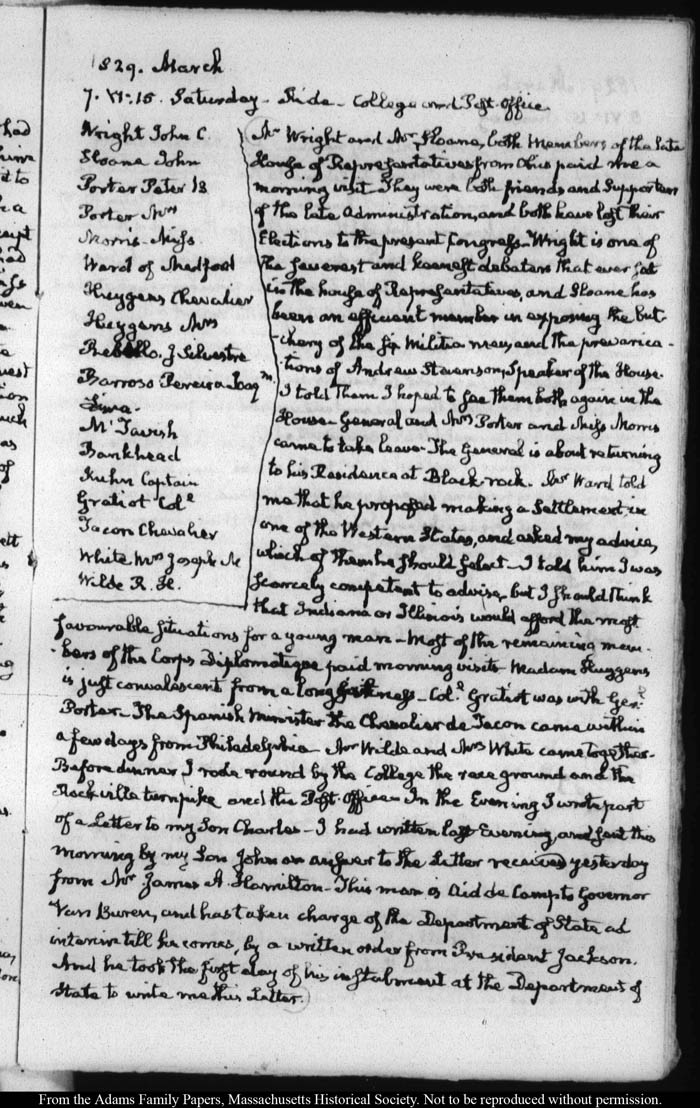 1829. March
7. VI:15. Saturday - Ride - College and Post-Office
Wright John C
Sloane John
Porter Peter B
Porter Mrs
Morris - Miss.
Ward of Medford
Huygens Chevalier
Huygens Mrs
Rebello. J Silvestre
Barrozo Pereira Joaqm.
Lima.
McTavish
Bankhead
Kuhn Captain
Gratiot Col.l
Tacon Chevalier
White Mrs Joseph M
Wilde R. H.
Mr Wright and Mr Sloane, both Members of the late
House of Representatives from Ohio paid me a
morning visit. They were both friends and supporters
of the late Administration, and both have lost their
Elections to the present Congress - Wright is one of
the severest and keenest debaters that ever sat
in the house of Representatives, and Sloane has
been an efficient member in exposing the but-
-chery of the six Militia men, and the prevarica-
-tions of Andrew Stevenson, Speaker of the House.
I told them I hoped to see them both again in the
House - General and Mrs Porter and Miss Morris
came to take leave - The General is about returning
to his Residence at Black-rock. Mr Ward told
me that he proposed making a Settlement in
one of the Western States, and asked my advice,
which of them he should select - I told him I was
scarcely competent to advise, but I should think
that Indiana or Illinois would afford the most
favourable situations for a young man - Most of the remaining mem-
-bers of the Corps Diplomatique paid morning visits - Madam Huygens
is just convalescent from a long sickness - Col.l Gratiot was with Gen.l
Porter - The Spanish Minister the Chevalier de Tacon came within
a few days from Philadelphia - Mr Wilde and Mrs White came together -
Before dinner I rode round by the College the race ground and the
Rockville turnpike and the Post-Office - In the Evening I wrote part
of a Letter to my Son Charles - I had written last Evening, and sent this
morning by my Son John an answer to the Letter received yesterday
from Mr James A. Hamilton - This man is Aid de Camp to Governor
Van Buren, and has taken charge of the Department of State ad
interim till he comes, by a written order from President Jackson.
And he took the first day of his instalment at the Department of
State to write me this Letter.
From the Adams Family Papers, Massachusetts Historical Society. Not to be reproduced without permission.